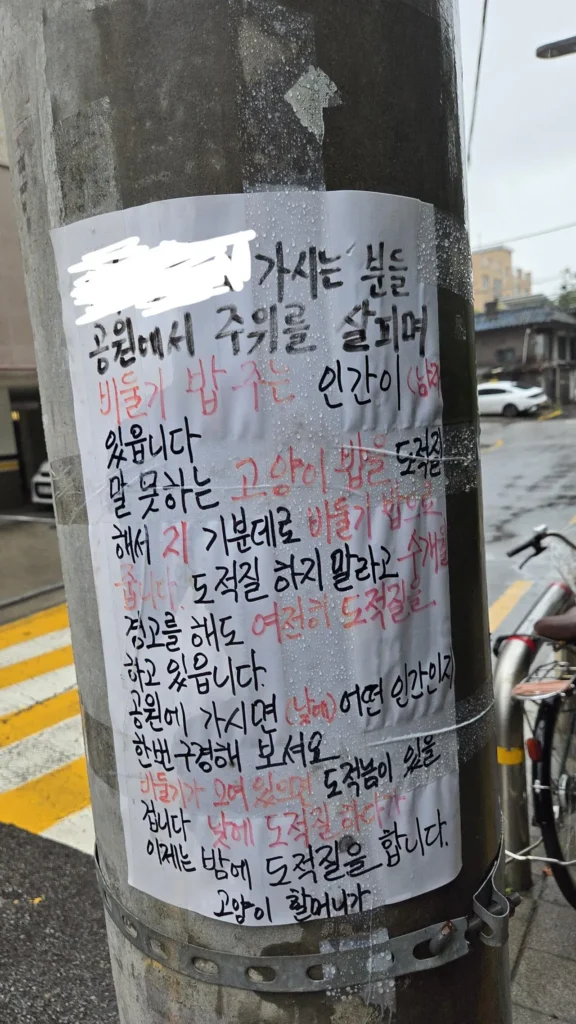 가시는 분들
공원에서 주위를 살피며
비둘기 밥 주는 인간이 (남자)
있읍니다
말 못하는 고양이 밥을 도적질
해서 지 기분데로 비둘기 밥으로
줍니다. 도적질 하지 말라고 수개월
경고를 해도 여전히 도적질을
하고 있읍니다.
공원에 가시면 (낮에) 어떤 인간인지
한번 구경해 보셔요
비둘기가 모여 있으면 도적놈이 있을
겁니다 낮에 도적질 하다가
이제는 밤에 도적질을 합니다.
고양이 할머니가